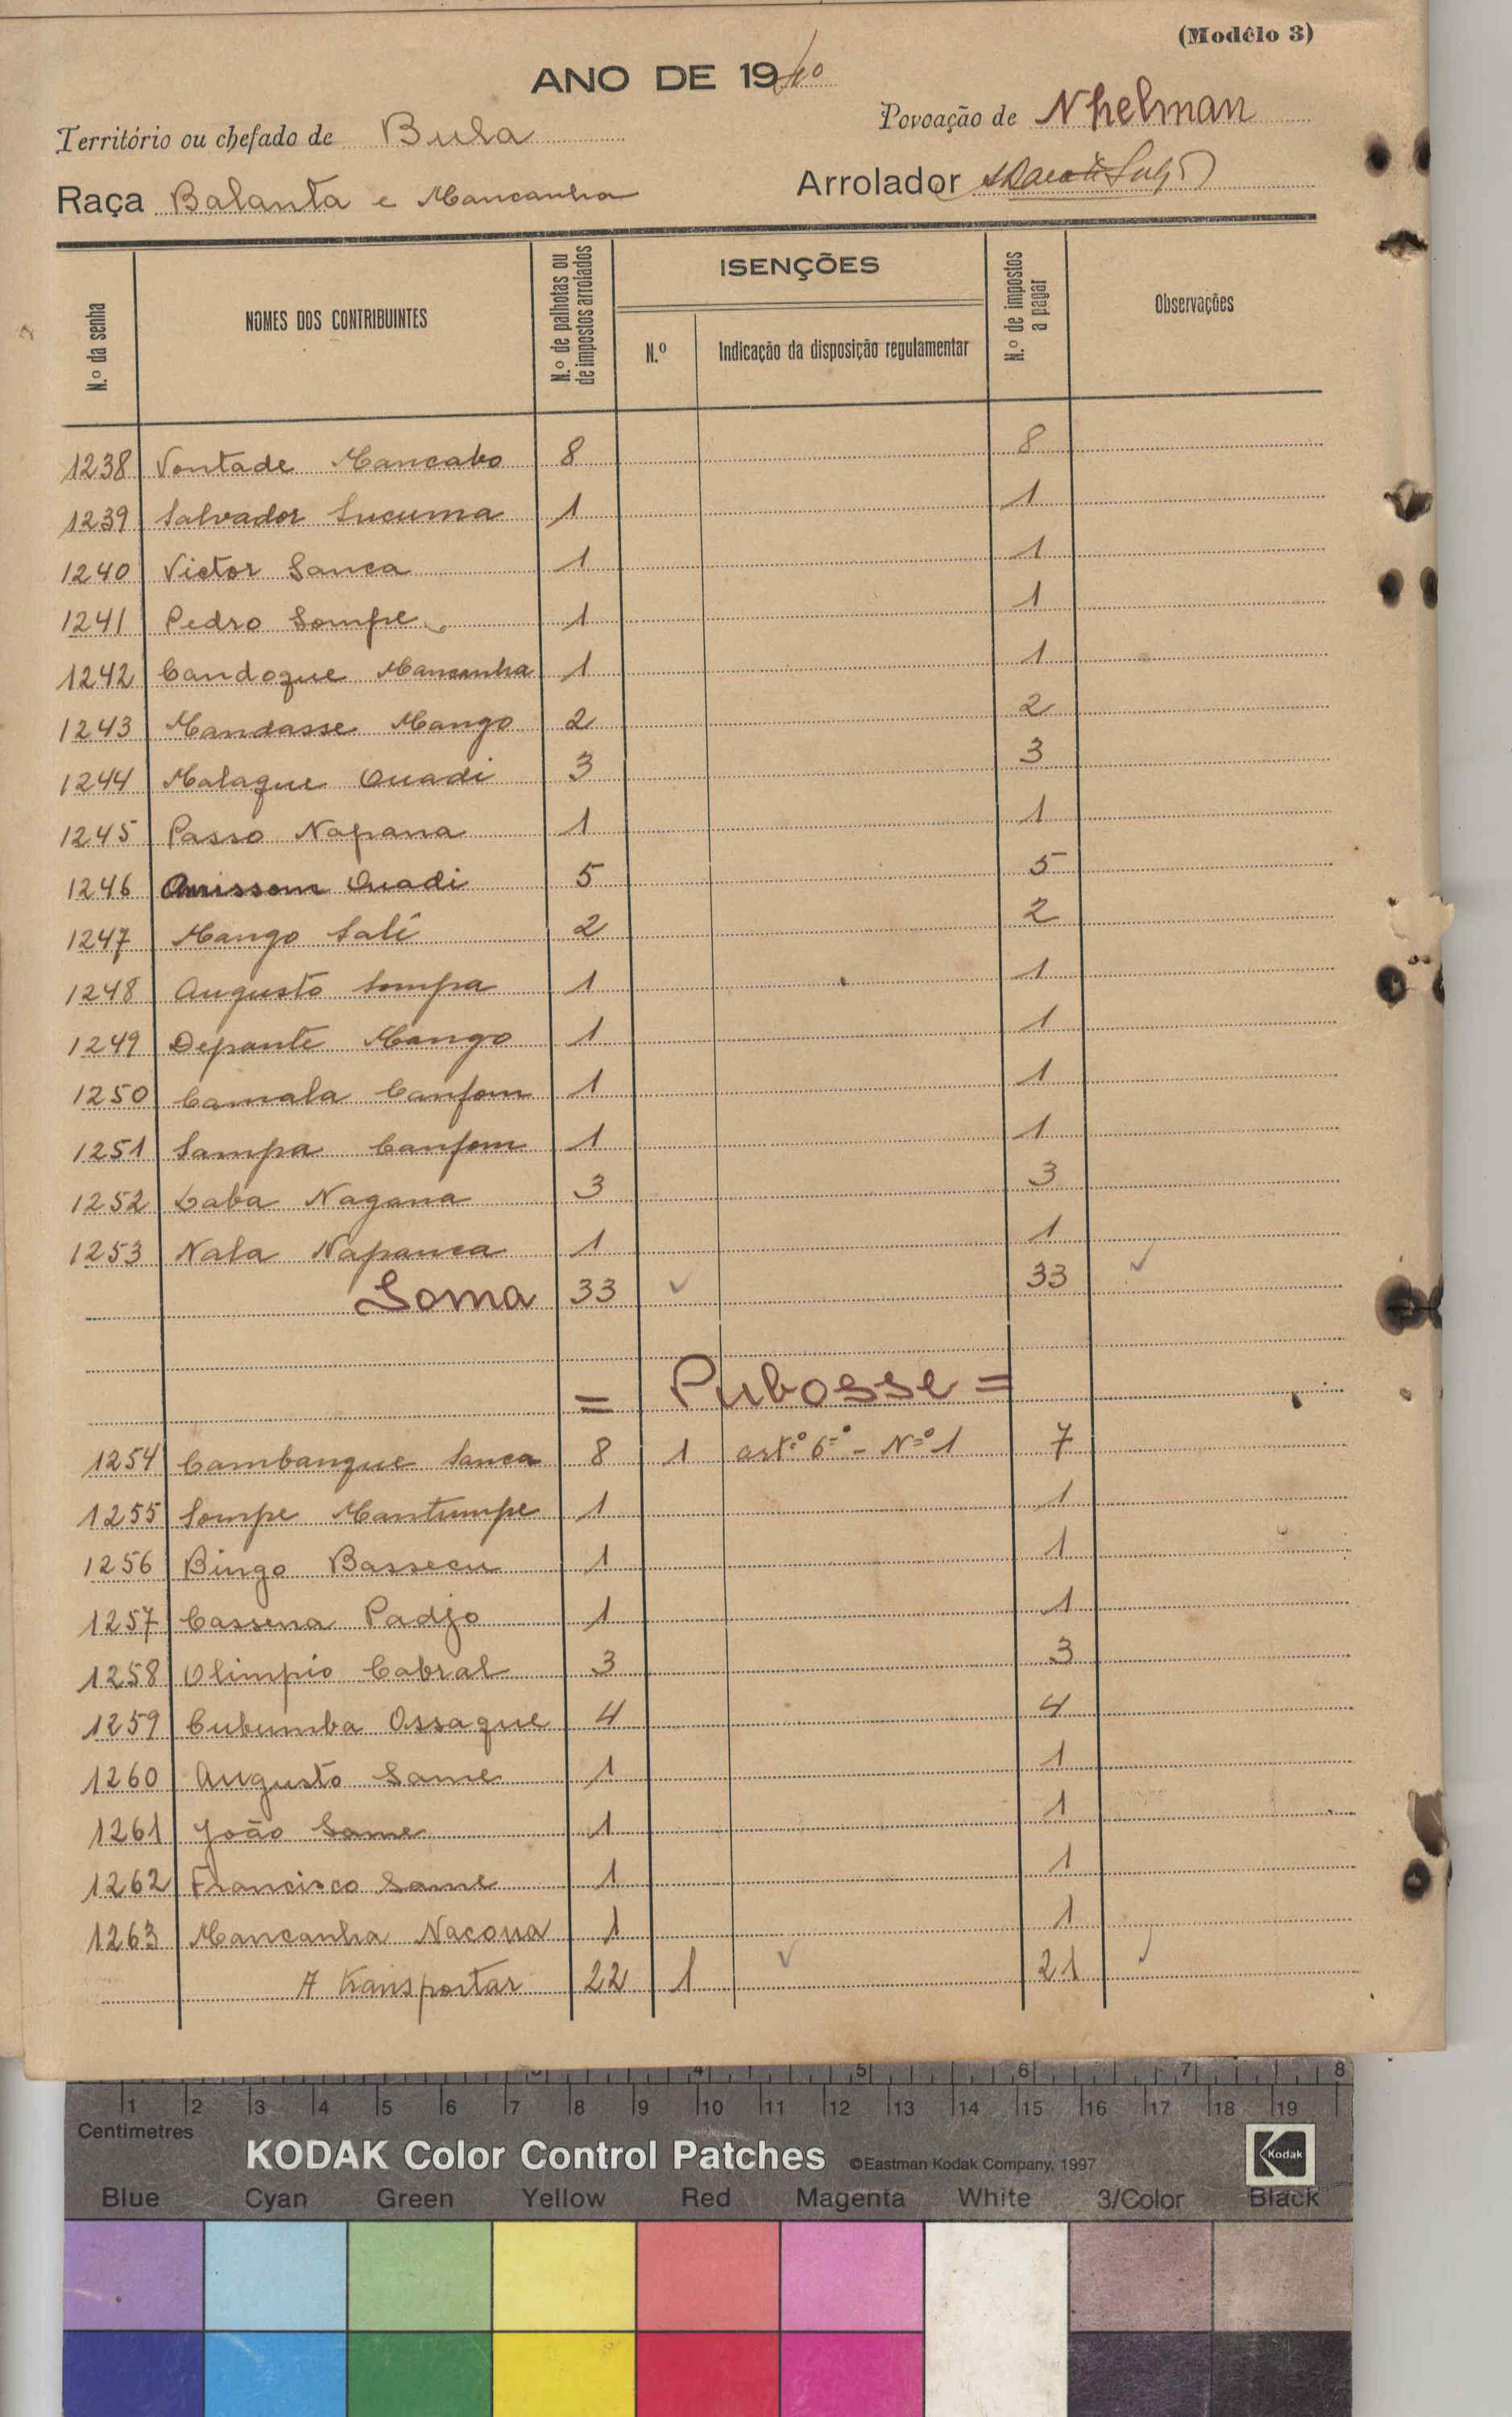 (Modêlo 3)
ANO DE 1940
Território ou chefado de Bula
Povoação de Nhelman
Raça Balanta e Mancanha
Arrolador
N.º da senha
NOMES DOS CONTRIBUINTES
N.º de palhotas ou de impostos arrolados
ISENÇÕES
N.º
Indicação da disposição regulamentar
N.º de impostos a pagar
Observações
1238 Vontade Mancabo 8 8
1239 Salvador Sucuma 1 1
1240 Victor Sanca 1 1
1241 Pedro Sompe 1 1
1242 Candoque Mancanha 1 1
1243 Mandasse Mango 2 2
1244 Malaque Quadi 3 3
1245 Passo Napana 1 1
1246 Quadi 5 5
1247 Mango Salé 2 2
1248 Augusto Sompa 1 1
1249 Depante Mango 1 1
1250 Camala Canfom 1 1
1251 Sampa Canfom 1 1
1252 Laba Nagana 3 3
1253 Nala Napanca 1 1
Soma 33 33
= Pubosse =
1254 Cambanque Sanca 8 1 artº 6º - Nº 1 7
1255 Sompe Mantumpe 1 1
1256 Bingo Bassecu 1 1
1257 Cassena Padjo 1 1
1258 Olimpio Cabral 3 3
1259 Cubumba Ossaque 4 4
1260 Augusto Same 1 1
1261 João Same 1 1
1262 Francisco Same 1 1
1263 Mancanha Nacoua 1 1
A transportar 22 1 21
3 4 5 6 7 8
1 2 3 4 5 6 7 8 9 10 11 12 13 14 15 16 17 18 19
Centimetres
KODAK Color Control Patches ©Eastman Kodak Company, 1997 Kodak
Blue Cyan Green Yellow Red Magenta White 3/Color Black